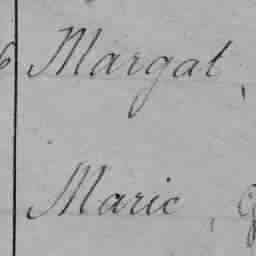 Margat,
Marie,